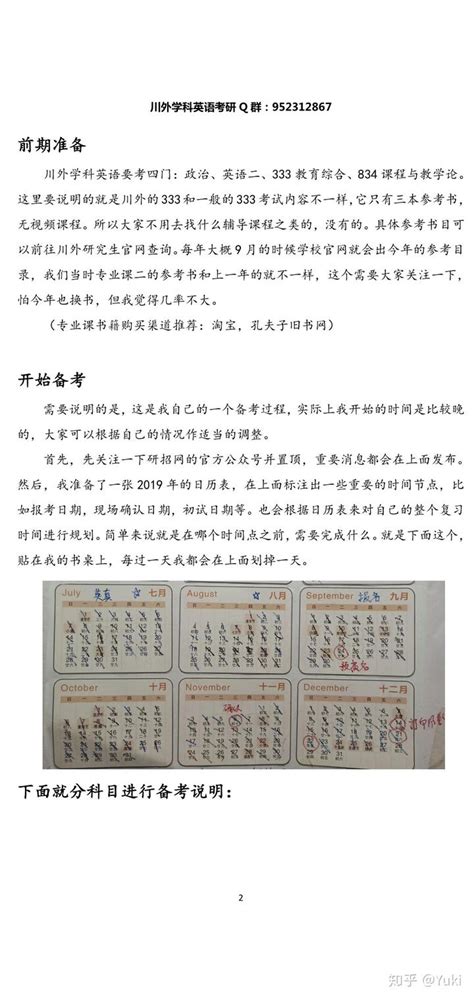 川外学科英语考研 Q 群：952312867
前期准备
川外学科英语要考四门：政治、英语二、333 教育综合、834 课程与教学论。
这里要说明的就是川外的 333 和一般的 333 考试内容不一样，它只有三本参考书，
无视频课程。所以大家不用去找什么辅导课程之类的，没有的。具体参考书目可
以前往川外研究生官网查询。每年大概 9 月的时候学校官网就会出今年的参考目
录，我们当时专业课二的参考书和上一年的就不一样，这个需要大家关注一下，
怕今年也换书，但我觉得几率不大。
（专业课书籍购买渠道推荐：淘宝，孔夫子旧书网）
开始备考
需要说明的是，这是我自己的一个备考过程，实际上我开始的时间是比较晚
的，大家可以根据自己的情况作适当的调整。
首先，先关注一下研招网的官方公众号并置顶，重要消息都会在上面发布。
然后，我准备了一张 2019 年的日历表，在上面标注出一些重要的时间节点，比
如报考日期，现场确认日期，初试日期等。也会根据日历表来对自己的整个复习
时间进行规划。简单来说就是在哪个时间点之前，需要完成什么。就是下面这个，
贴在我的书桌上，每过一天我都会在上面划掉一天。
July 七月
August 八月
September 报名 九月
October 十月
November 十一月
确认
December 十二月
下面就分科目进行备考说明：
2
知乎 @Yuki